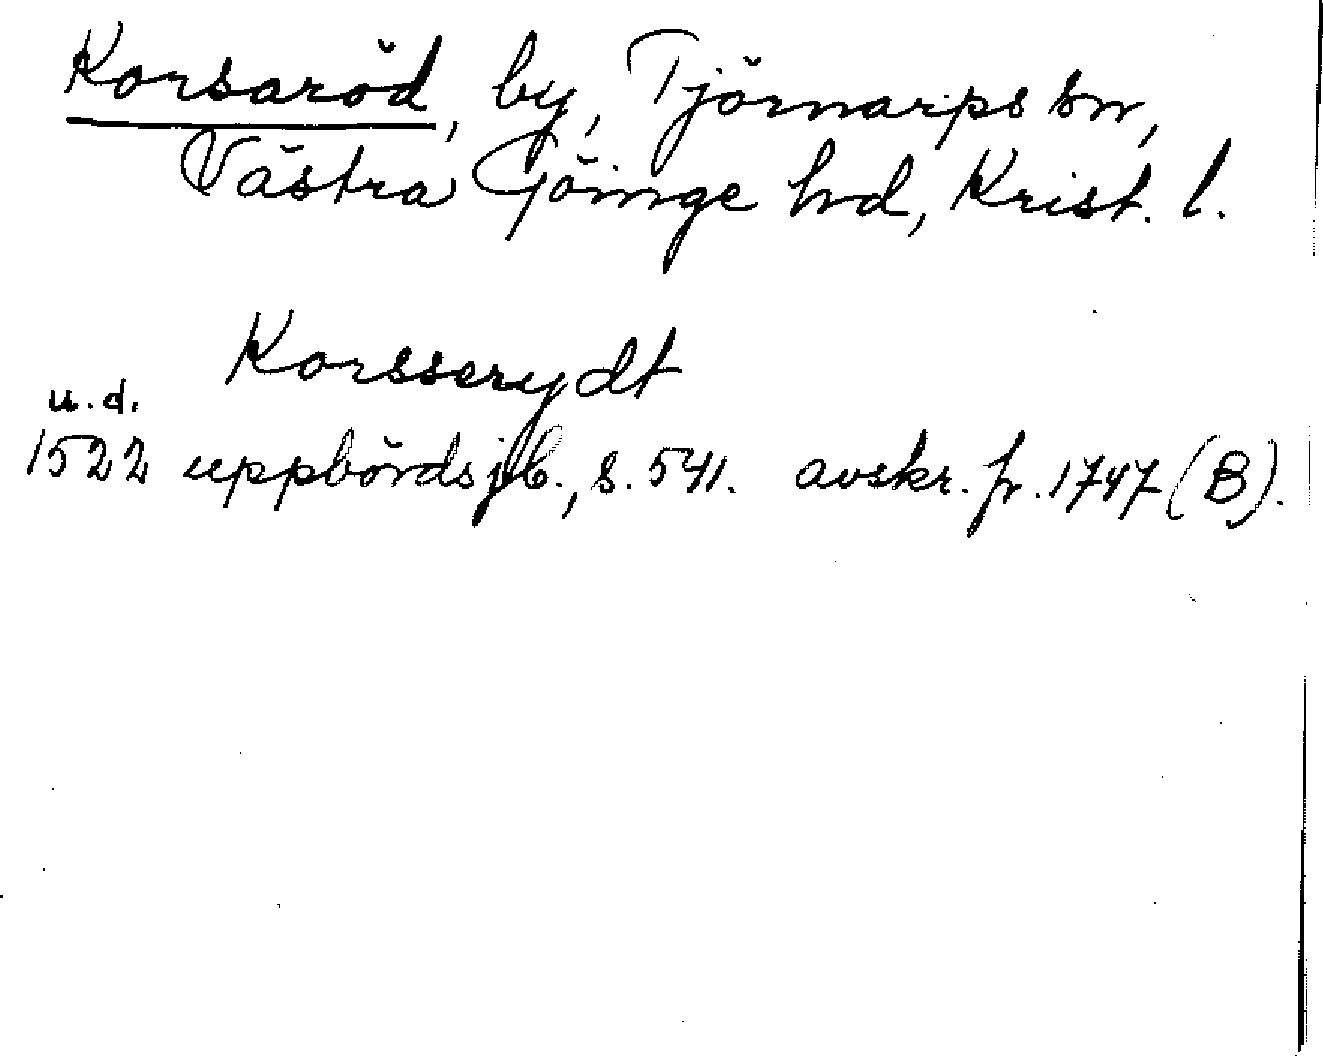 Korsaröd, by, Tjörnarps sn,
Västra Göinge hd, Krist. l.
Korsserydt
u.d.
1522 uppbördsjb., s. 541. avskr. fr. 1747 (B).